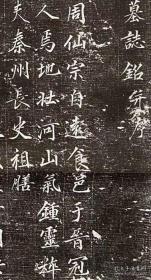 墓誌銘并序
周仙宗自遠食邑于晉冠
人焉地壯河山氣鍾靈粹
夫秦州長史祖膳